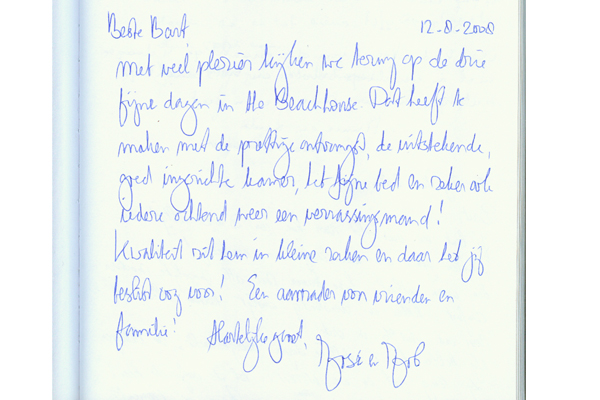 Beste Bart, 12-8-2008
met veel plezier kijken we terug op de drie
fijne dagen in the Beachhouse. Dat heeft te
maken met de prettige ontvangst, de uitstekende,
goed ingerichte kamer, het fijne bed en zeker ook
iedere ochtend weer een verrassingsmand!
Kwaliteit zit hem in kleine zaken en daar heb jij
beslist oog voor! Een aanrader voor vrienden en
familie! Hartelijke groet,
José en Rob